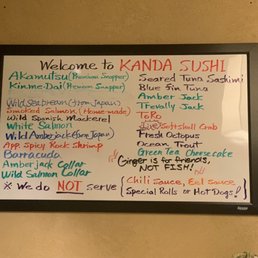 Welcome to KANDA SUSHI
Akamutsu (Premium Snapper)
Kinme-Dai (Premium Snapper)
Wild Seabream (from Japan)
Smoked Salmon (Home-made)
Wild Spanish Mackerel
White Salmon
Wild Amberjack (from Japan)
App. Spicy Rock Shrimp
Barracuda
Amberjack Collar
Wild Salmon Collar
Seared Tuna Sashimi
Blue fin Tuna
Amber Jack
Trevally Jack
ToRo
Live Softshell Crab
Fresh Octopus
Ocean Trout
Green Tea Cheesecake
Ginger is for friends,
NOT FISH!
※ We do NOT serve
Chili Sauce, Eel Sauce
Special Rolls or Hot Dogs!